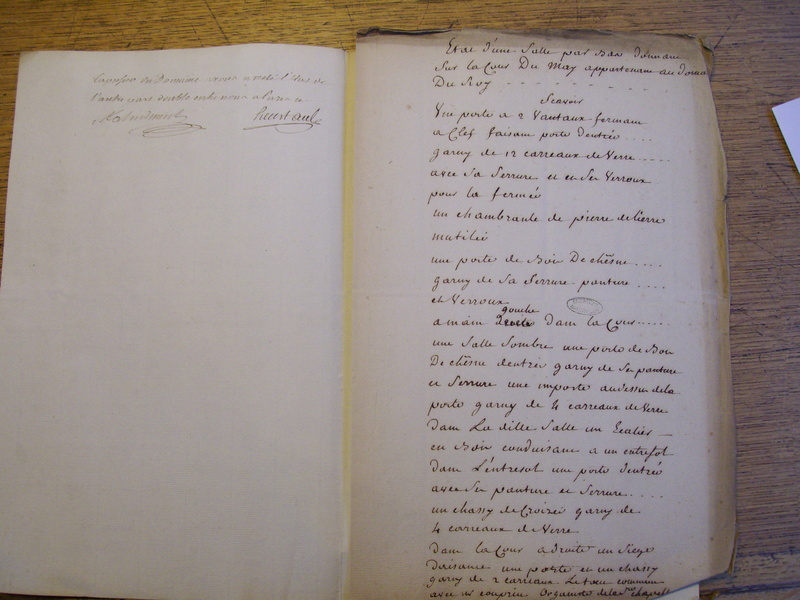 l'autre part double entre nous a
Etat d'une Salle par Bas donnant
Sur la Cour Du May appartenant au
Du Roy
Scavoir
Un porte a 2 Vantaux fermant
a Clef faisant porte dentrée
garny de 12 carreaux de Verre
avec Sa Serrure et en Ses Verroux
pour la fermée
un chambranle de pierre de lierre
mutilée
une porte de Bois De chêsne
garny de Sa Serrure panture
et Verroux
gauche
a main droite dans la Cour
une Salle Sombre une porte de Bois
De chêsne dentrée garny de Ses panture
et Serrure une imposte audessus dela
porte garny de 4 carreaux de Verre
dans La ditte Salle un Ecalier
en Bois conduisant a un entresol
dans L'éntresol une porte dentrée
avec Ses panture et Serrure
un chassy de Croizée garny de
4 carreaux de Verre
dans la Cour adroite un Siege
Daisance une porte et un chassy
garny de 2 carreaux Le tout commun
avec mr couprin Organiste dela Ste chapelle